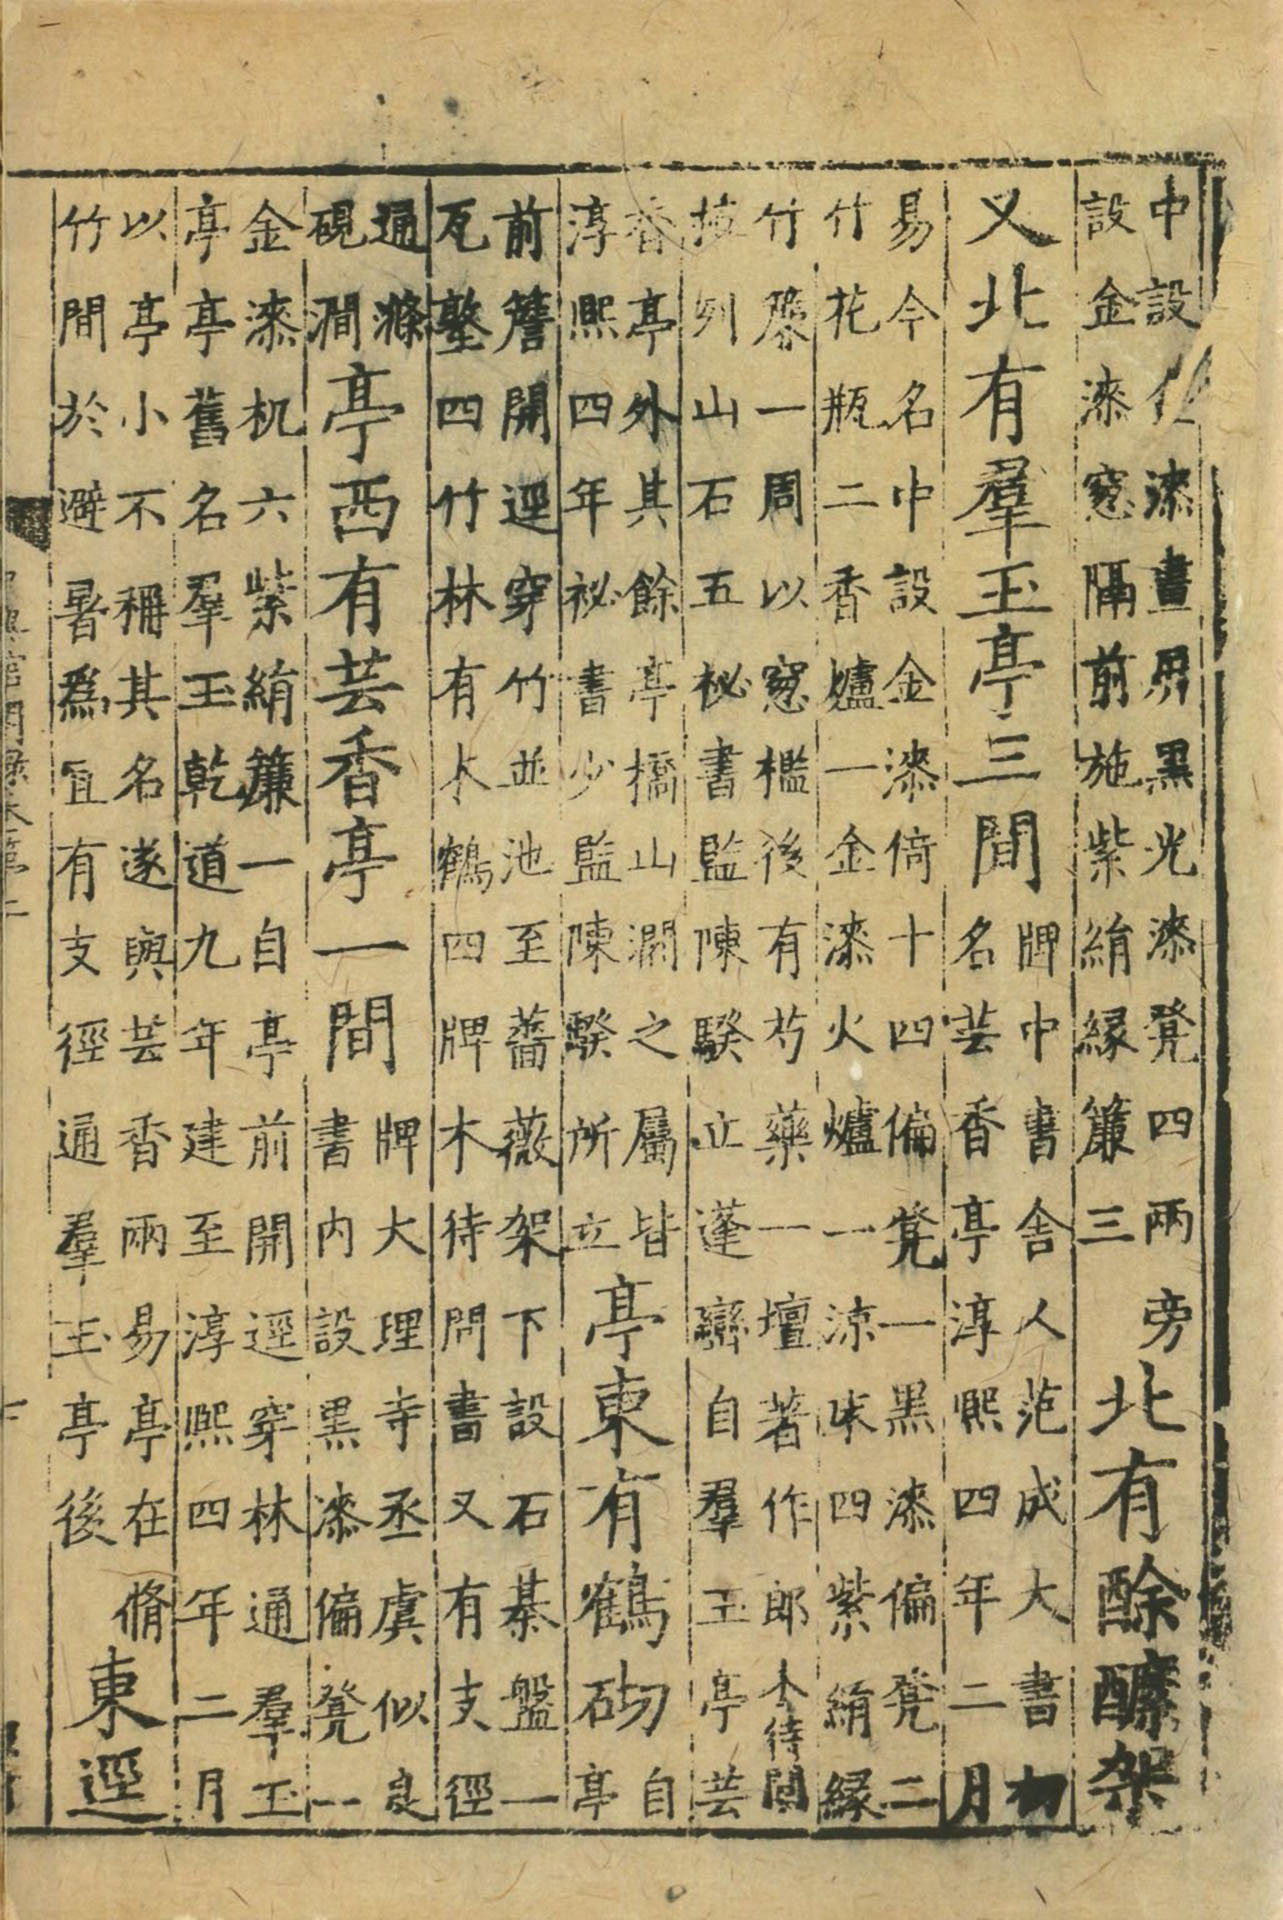 中設漆畫屏黑光漆凳四兩旁
設金漆窓隔前施紫絹緣簾三
北有酴醿架
又北有羣玉亭三間
牌中書舍人范成大書初
名芸香亭淳熙四年二月
易今名中設金漆倚十四偏凳一黑漆偏凳二
竹花瓶二香爐一金漆火爐一涼床四紫絹緣
竹簾一周以窓檻後有芍藥一壇著作郎木待問
列山石五秘書監陳騤立蓬巒自羣玉亭芸
香亭外其餘亭橋山澗之屬皆
淳熙四年祕書少監陳騤所立
亭東有鶴砌
自
亭
前簷開逕穿竹並池至薔薇架下設石棊盤一
瓦墪四竹林有木鶴四牌木待問書又有支徑
通滌
硯澗
亭西有芸香亭一間
牌大理寺丞虞似良
書内設黑漆偏凳一
金漆杌六紫絹簾一自亭前開逕穿林通羣玉
亭亭舊名羣玉乾道九年建至淳熙四年二月
以亭小不稱其名遂與芸香兩易亭在脩
竹間於避暑爲宜有支徑通羣玉亭後
東逕